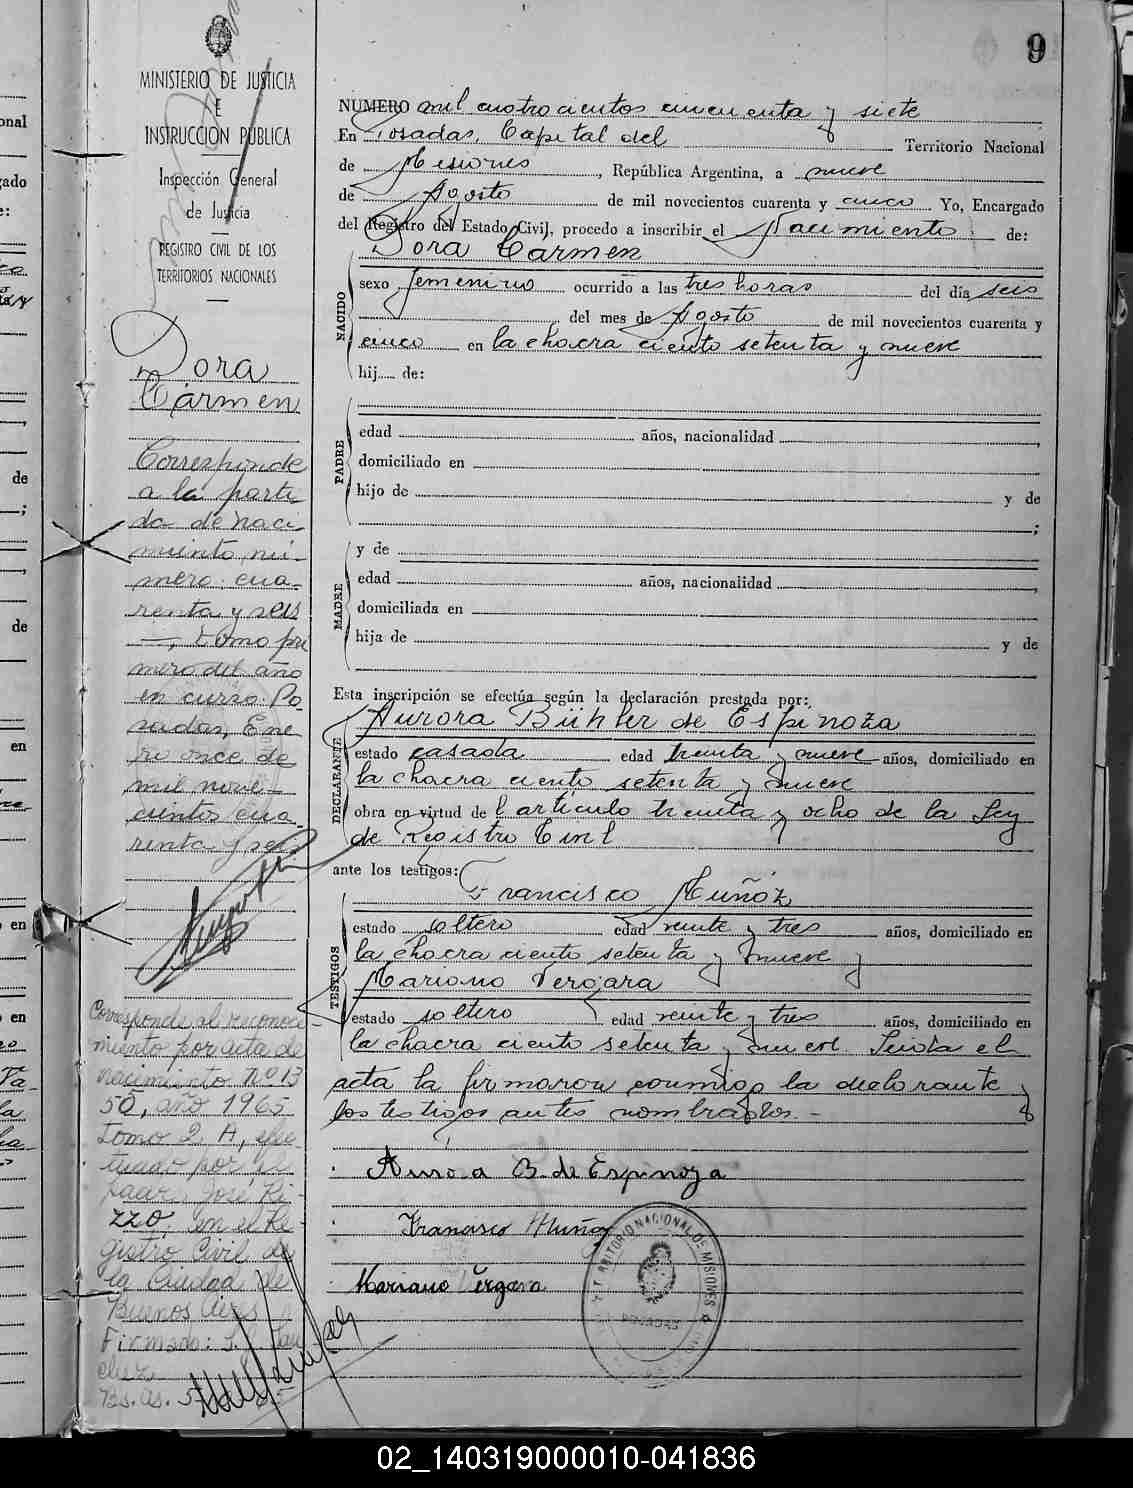 9
MINISTERIO DE JUSTICIA
E
INSTRUCCION PUBLICA
Inspección General
de Justicia
REGISTRO CIVIL DE LOS
TERRITORIOS NACIONALES
Dora
Carmen
Corresponde
a la parti
da de naci
miento nú-
mero cua-
renta y seis
—, tomo pri
mero del año
en curso. Po-
sadas, Ene
ro once de
mil nove-
cientos cua-
renta y seis
Corresponde al reconoci-
miento por acta de
nacimiento Nº 13
50, año 1965
Tomo 2 A, efec
tuado por el
padre José Ri-
zzo, en el Re-
gistro Civil de
la Ciudad de
Buenos Aires
Firmado:
Bs. As.
NUMERO mil cuatrocientos cincuenta y siete
En Posadas, Capital del Territorio Nacional
de Misiones, República Argentina, a nueve
de Agosto de mil novecientos cuarenta y cinco Yo, Encargado
del Registro del Estado Civil, procedo a inscribir el Nacimiento de:
Dora Carmen
NACIDO
sexo femenino ocurrido a las tres horas del día seis
del mes de Agosto de mil novecientos cuarenta y
cinco en la chacra ciento setenta y nueve
hij..... de:
PADRE
edad años, nacionalidad
domiciliado en
hijo de y de
;
MADRE
y de
edad años, nacionalidad
domiciliada en
hija de y de
Esta inscripción se efectúa según la declaración prestada por:
DECLARANTE
Aurora Bühler de Espinoza
estado casada edad treinta y nueve años, domiciliado en
la chacra ciento setenta y nueve
obra en virtud del artículo treinta y ocho de la Ley
de Registro Civil
ante los testigos:
Francisco Muñóz
TESTIGOS
estado soltero edad veinte y tres años, domiciliado en
la chacra ciento setenta y nueve y
Mariano Vergara
estado soltero edad veinte y tres años, domiciliado en
la chacra ciento setenta y nueve. Leida el
acta la firmaron conmigo la declarante y
los testigos antes nombrados.-
Aurora B. de Espinoza
Francisco Muñoz
Mariano Vergara
TERRITORIO NACIONAL DE MISIONES
POSADAS
onal
gado
e:
de
;
de
en
en
en
02_140319000010-041836